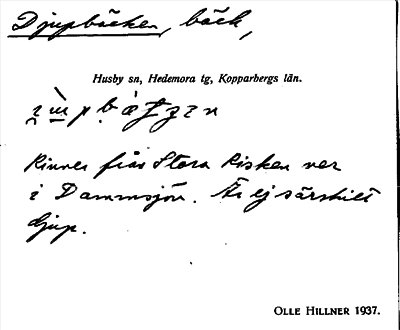 Djupbäcken, bäck,
Husby sn, Hedemora tg, Kopparbergs län.
Rinner från Stora Risken ner
i Dammsjön. Är ej särskilt
djup.
OLLE HILLNER 1937.